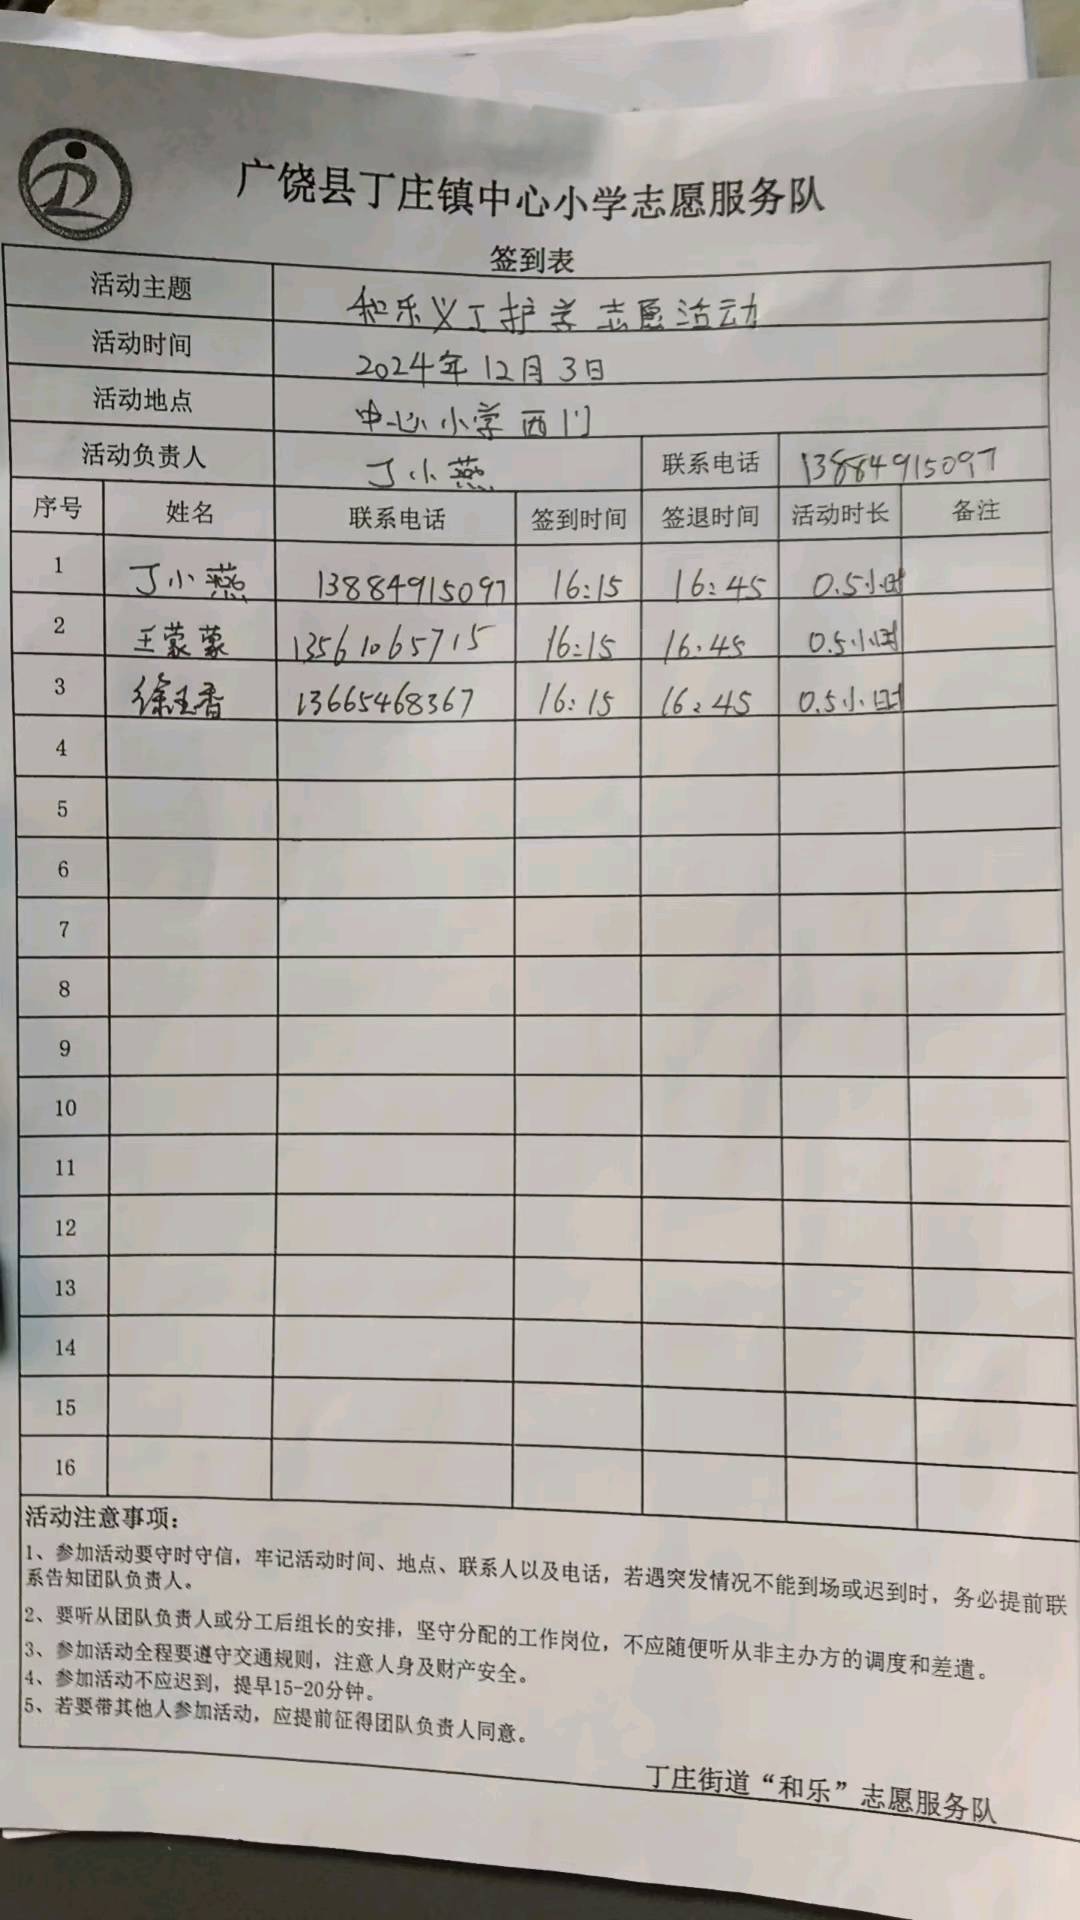 广饶县丁庄镇中心小学志愿服务队
签到表
活动主题 和乐义工护学志愿活动
活动时间 2024年12月3日
活动地点 中心小学西门
活动负责人 丁小燕 联系电话 13884915097
序号 姓名 联系电话 签到时间 签退时间 活动时长 备注
1 丁小燕 13884915097 16:15 16:45 0.5小时
2 王蒙蒙 13561065715 16:15 16:45 0.5小时
3 徐玉香 13665468367 16:15 16:45 0.5小时
4
5
6
7
8
9
10
11
12
13
14
15
16
活动注意事项：
1、参加活动要守时守信，牢记活动时间、地点、联系人以及电话，若遇突发情况不能到场或迟到时，务必提前联
系告知团队负责人。
2、要听从团队负责人或分工后组长的安排，坚守分配的工作岗位，不应随便听从非主办方的调度和差遣。
3、参加活动全程要遵守交通规则，注意人身及财产安全。
4、参加活动不应迟到，提早15-20分钟。
5、若要带其他人参加活动，应提前征得团队负责人同意。
丁庄街道“和乐”志愿服务队